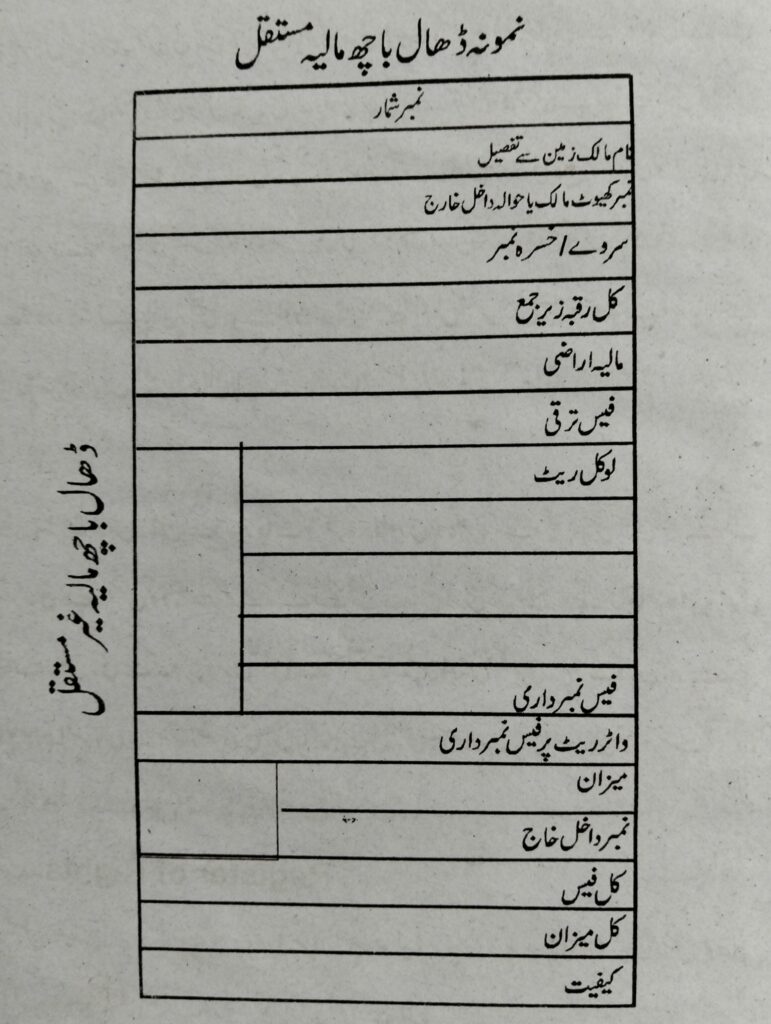 نمونہ ڈھال باچھ مالیہ مستقل
نمبر شمار
نام مالک زمین سے تفصیل
نمبر کھیوٹ مالک یا حوالہ داخل خارج
سروے / خسرہ نمبر
کل رقبہ زیر جمع
مالیہ اراضی
فیس ترقی
لوکل ریٹ
فیس نمبرداری
واٹر ریٹ پر فیس نمبرداری
میزان
نمبر داخل خاج
کل فیس
کل میزان
کیفیت
ڈھال باچھ مالیہ غیر مستقل